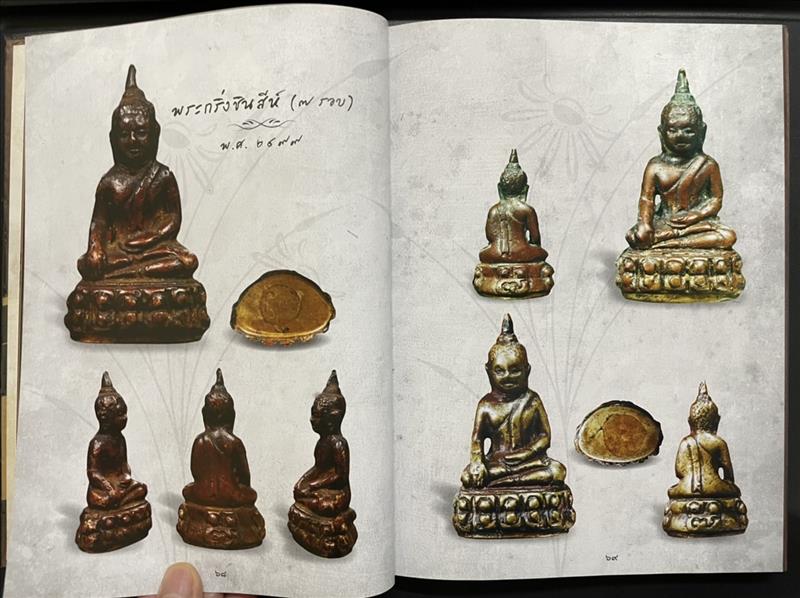 พระกริ่งชินสีห์ (๗ รอบ)
พ.ศ. ๒๔๗๗
๖๘
๖๙